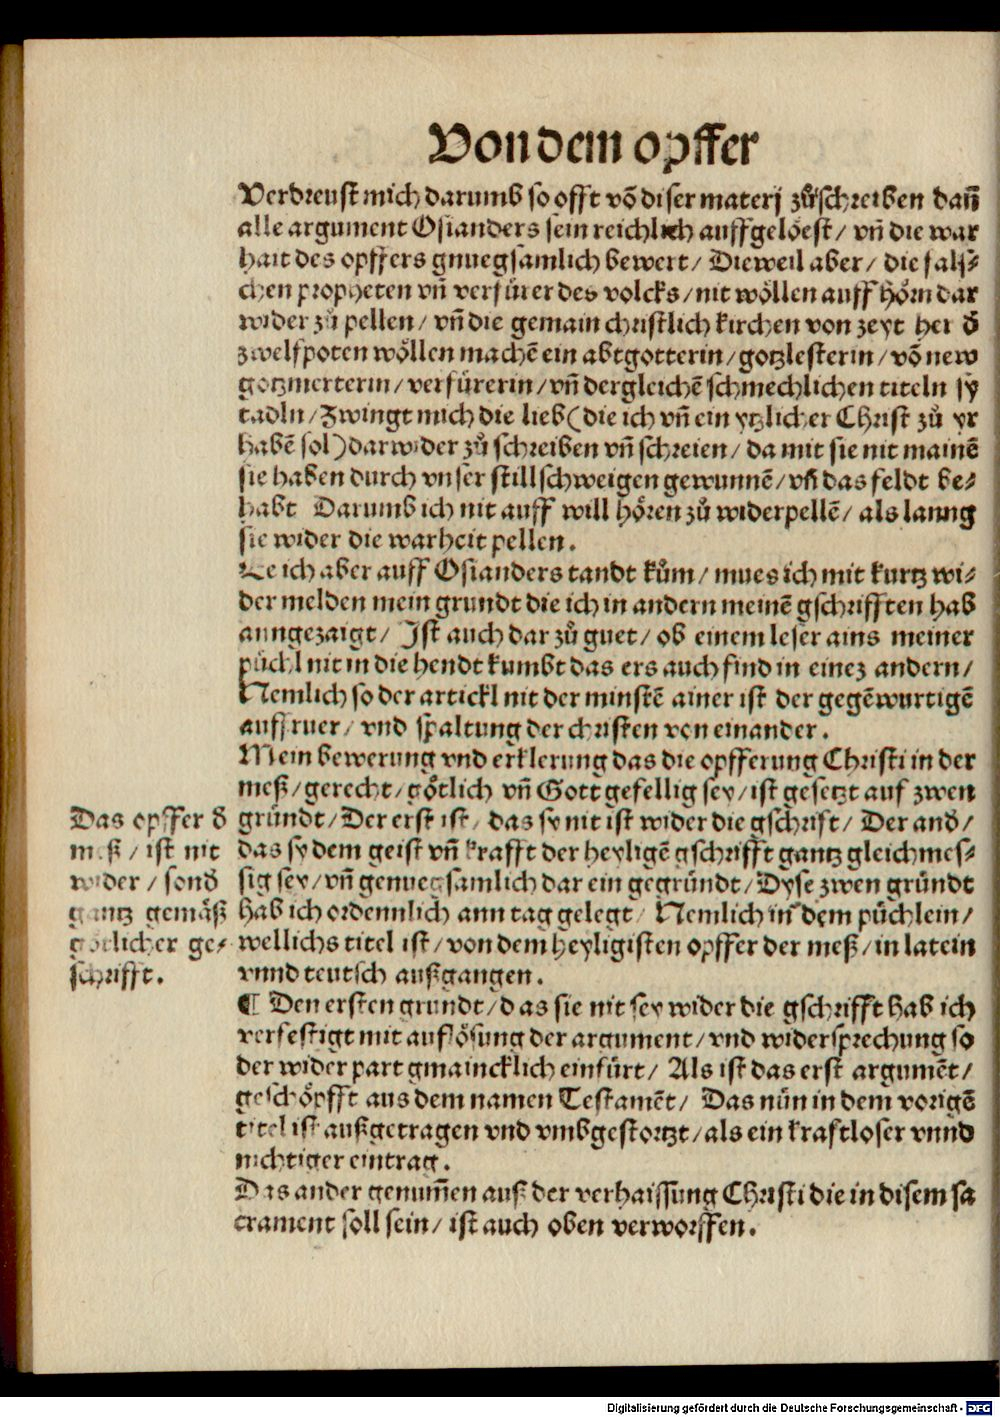 Von dem opffer
Verdreust mich darumb so offt võ diser materj zůschreiben dañ
alle argument Osianders sein reichlich auffgelöest / vñ die war
hait des opffers gnuegsamlich bewert / Dieweil aber / die fals⸗
chen propheten vñ verfürer des volcks / nit wöllen auff hörn dar
wider zů pellen / vñ die gemain christlich kirchen von zeyt her d̄
zwelfpoten wöllen machẽ ein abtgotterin / gotzlesterin / võ new
gotzmerterin / verfürerin / vñ dergleichẽ schmechlichen titeln sy
tadln / Zwingt mich die lieb (die ich vñ ein ytzlicher Christ zů yr
habẽ sol) darwider zů schreiben vñ schreien / da mit sie nit mainẽ
sie haben durch vnser stillschweigen gewunnẽ / vñ das feldt be⸗
habt Darumb ich nit auff will hören zů widerpellẽ / als lanng
sie wider die warheit pellen.
Ee ich aber auff Osianders tandt kům / mues ich mit kurtz wi⸗
der melden mein grundt die ich in andern meinẽ gschrifften hab
anngezaigt / Ist auch dar zů guet / ob einem leser ains meiner
püchl nit in die hendt kumbt das ers auch find in einez andern /
Nemlich so der artickl nit der minstẽ ainer ist der gegẽwurtigẽ
auffruer / vnd spaltung der christen von einander.
Mein bewerung vnd erklerung das die opfferung Christi in der
meß / gerecht / götlich vñ Gott gefellig sey / ist gesetzt auf zwen
gründt / Der erst ist / das sy nit ist wider die gschrift / Der and /
das sy dem geist vñ krafft der heyligẽ gschrifft gantz gleichmes⸗
sig sey / vñ genuegsamlich dar ein gegründt / Dyse zwen gründt
hab ich ordennlich ann tag gelegt / Nemlich in dem püchlein /
wellichs titel ist / von dem heyligisten opffer der meß / in latein
vnnd teutsch außgangen.
Das opffer d̄
meß / ist nit
wider / sond̄
gantz gemäß
götlicher ge⸗
schrifft.
¶ Den ersten grundt / das sie nit sey wider die gschrifft hab ich
verfestigt mit auflösung der argument / vnd widersprechung so
der widerpart gmaincklich einfürt / Als ist das erst argumẽt /
geschöpfft aus dem namen Testamẽt / Das nün in dem vorigẽ
titel ist außgetragen vnd vmbgestortzt / als ein kraftloser vnnd
nichtiger eintrag.
Das ander genum̃en auß der verhaissung Christi die in disem sa
crament soll sein / ist auch oben verworffen.
Digitalisierung gefördert durch die Deutsche Forschungsgemeinschaft - DFG